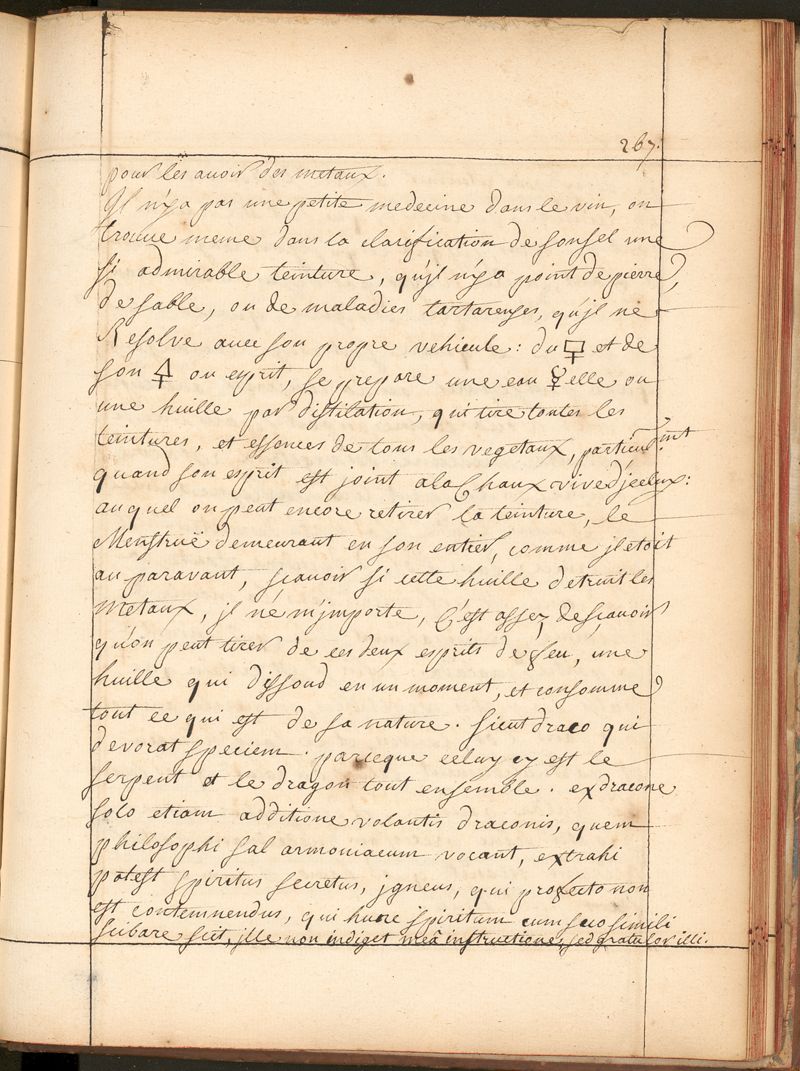 267.
pour les avoir des metaux.
Il n'ya pas une petite medecine dans le vin, on
trouue meme dans la clarification de son sel une
si admirable teinture, qu'jl n'ya point de pierre,
de sable, ou de maladies tartareuses, qu'jl ne
Resolve avec son propre vehicule: du 🜿 et de
son 🜍 ou esprit, se prepare une eau ☿elle ou
une huille par distilation, qui tire toutes les
teintures, et essences de tous les vegetaux, particul.mnt
quand son esprit est joint a la Chaux vive d'jceluy:
au quel on peut encore retirer la teinture, le
Menstruë demeurant en son entier, comme jl etoit
au paravant, scauoir si cette huille detruit les
metaux, jl ne m'jmporte, C'est assez de scauoir
qu'on peut tirer de ces deux esprits de feu, une
huille qui dissoud en un moment, et consomme
tout ce qui est de sa nature. sicut draco qui
devorat speciem. parceque celuy cy est le
serpent et le dragon tout ensemble. ex dracone
solo etiam additione volantis draconis, quem
philosophi sal armoniacum vocant, extrahi
potest spiritus secretus, jgneus, qui profecto non
est contemnendus, qui hunc spiritum cum suo simili
scibare scit, jlle non indiget meâ instructione, sed gratulor illi.